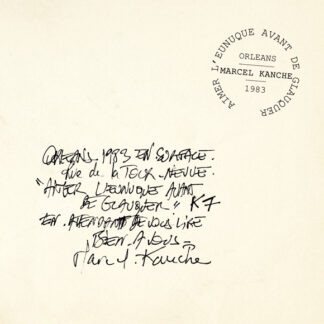 AIMER L'EUNUQUE AVANT DE GLAUQUER
ORLEANS
MARCEL KANCHE
1983
ORLEANS. 1983 EN SURFACE.
rue de la TOUR-NEUVE.
"AIMER L'EUNUQUE AVANT
DE GLAUQUER." K7
EN ATTENDANT DE VOUS LIRE
BIEN. A VOUS =
Marcel. Kanche